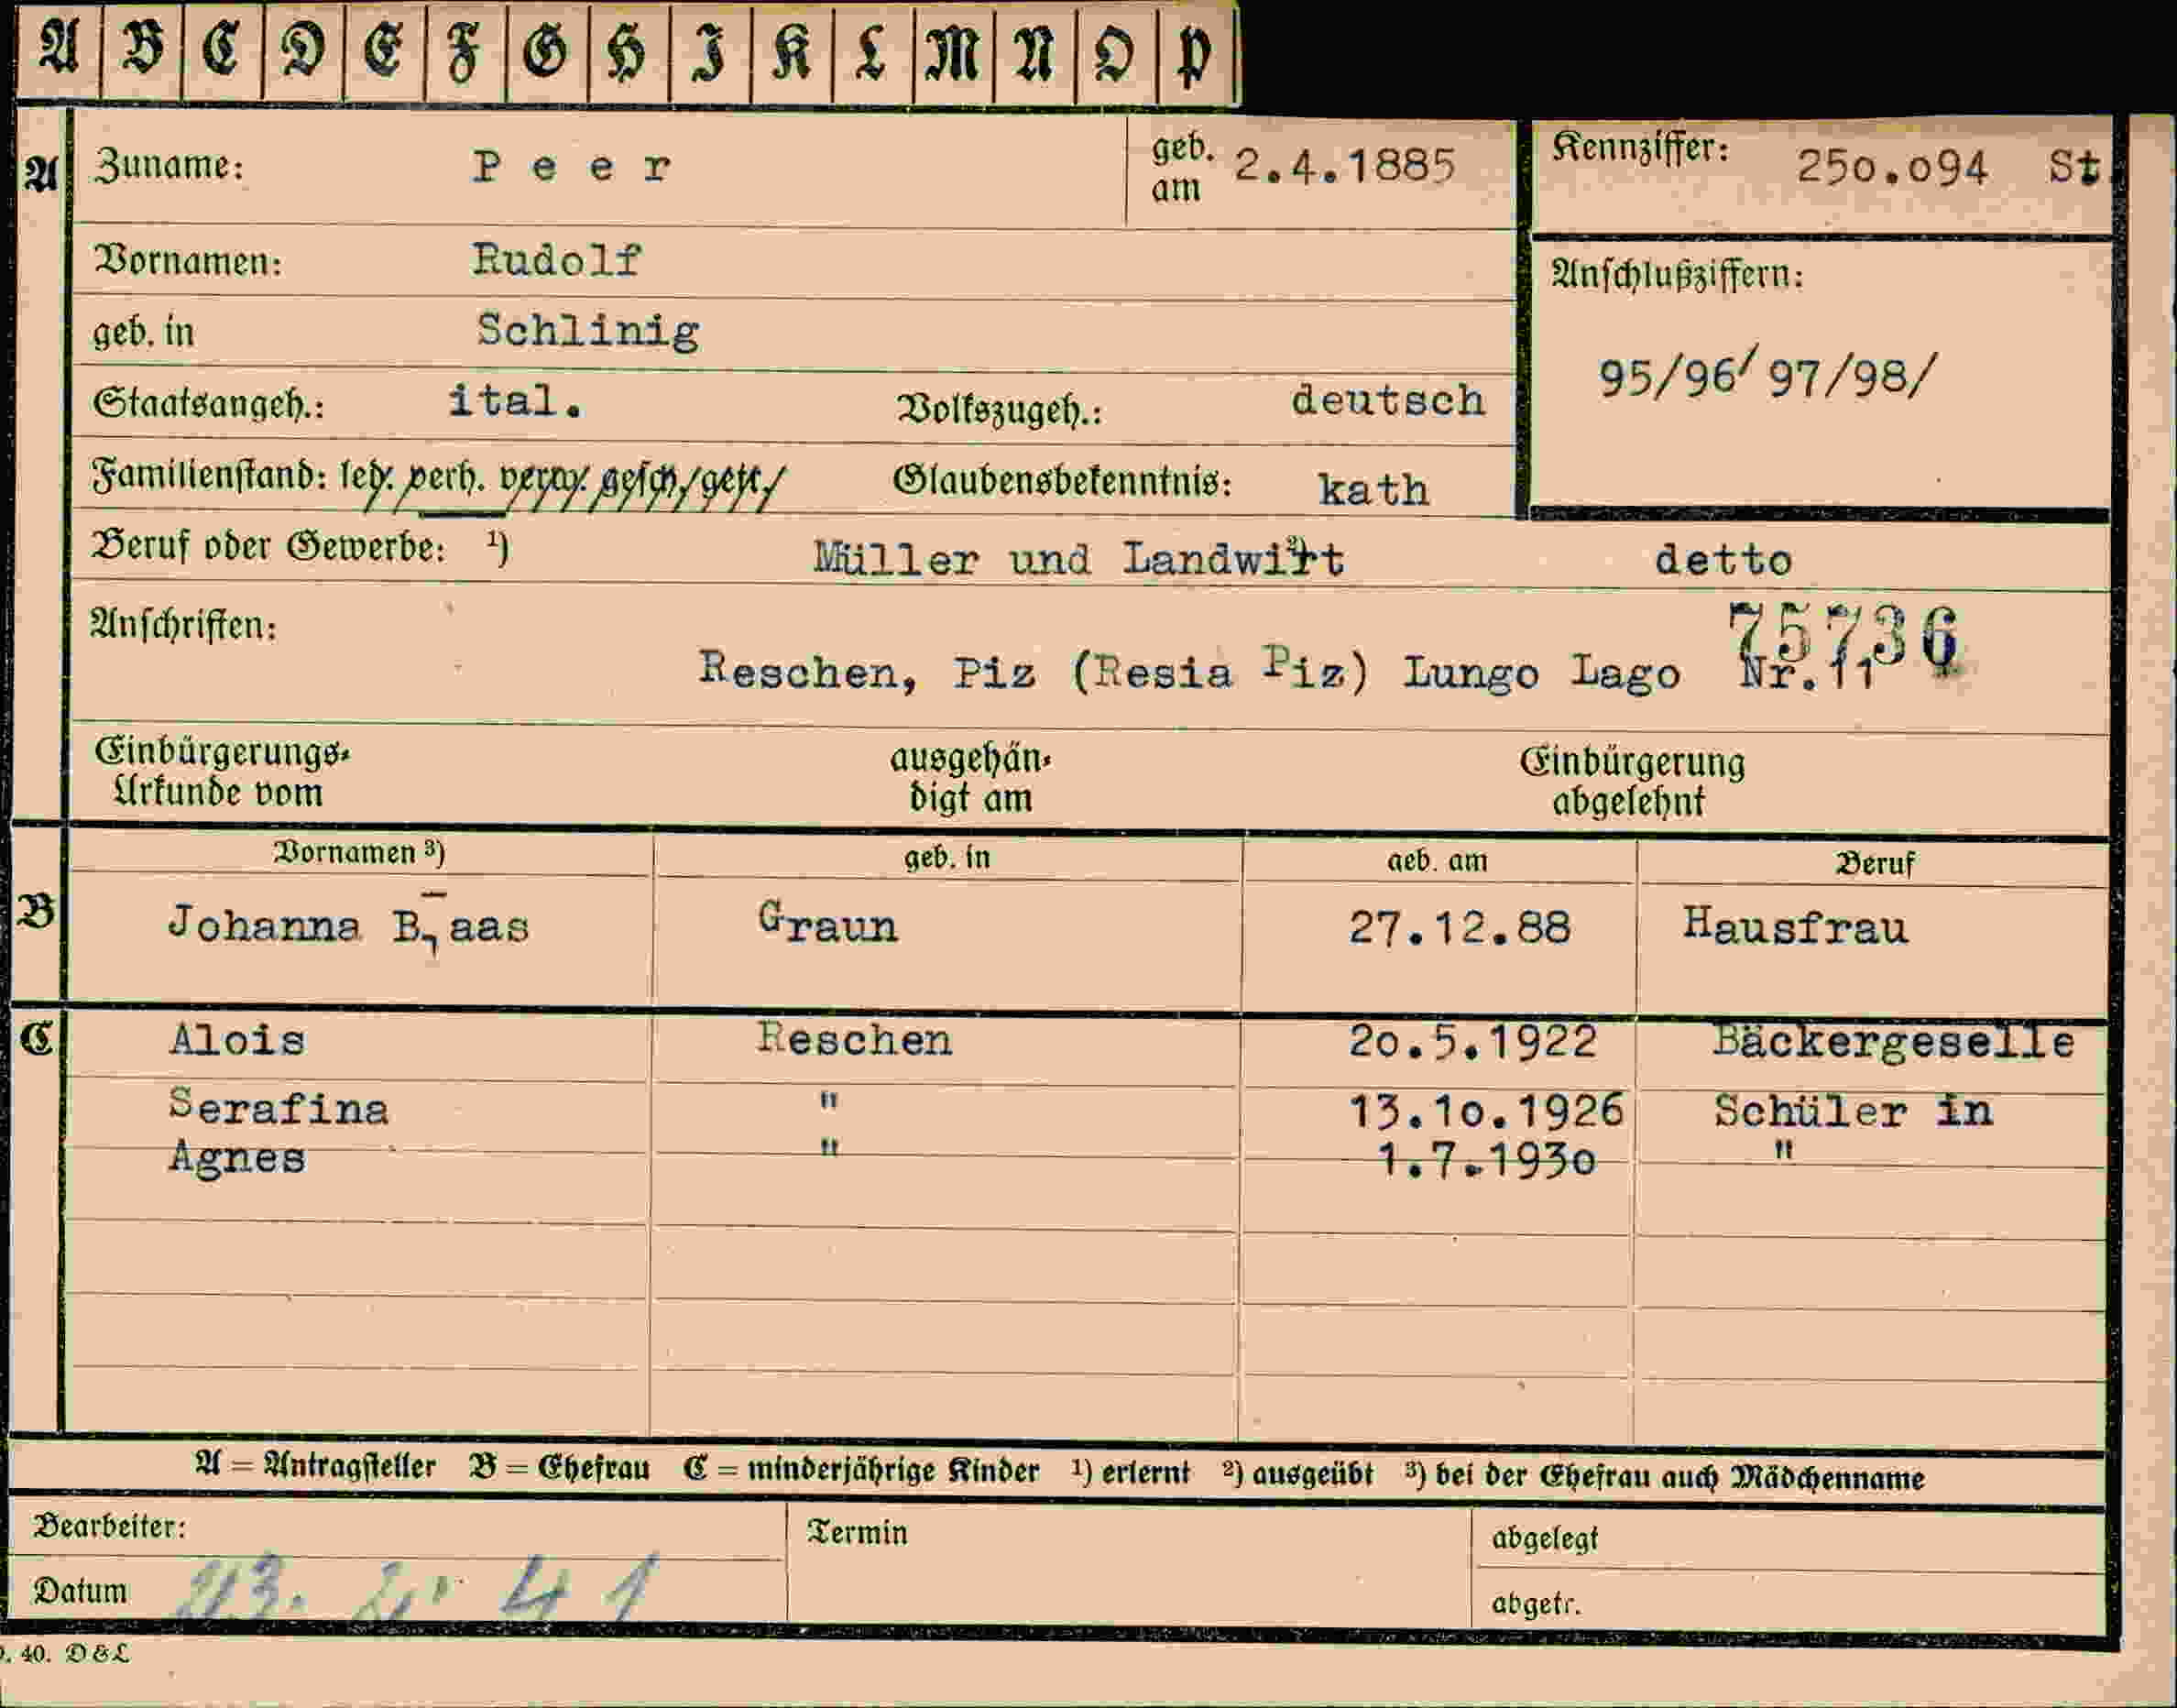 A B C D E F G H I K L M N O P
A Zuname: Peer geb. am 2.4.1885 Kennziffer: 25o.o94 St.
Vornamen: Rudolf Anschlußziffern:
geb. in Schlinig 95/96/97/98/
Staatsangeh.: ital. Volkszugeh.: deutsch
Familienstand: led. verh. verw. gesch./getr./ Glaubensbekenntnis: kath
Beruf oder Gewerbe: ¹) Müller und Landwirt ²) detto
75736
Anschriften: Reschen, Piz (Resia Piz) Lungo Lago Nr.11
Einbürgerungs-Urkunde vom ausgehändigt am Einbürgerung abgelehnt
Vornamen ³) geb. in geb. am Beruf
B Johanna B,aas Graun 27.12.88 Hausfrau
C Alois Reschen 2o.5.1922 Bäckergeselle
Serafina " 13.1o.1926 Schüler in
Agnes " 1.7.193o "
A = Antragsteller B = Ehefrau C = minderjährige Kinder ¹) erlernt ²) ausgeübt ³) bei der Ehefrau auch Mädchenname
Bearbeiter: Termin abgelegt
Datum abgetr.
40. D&L